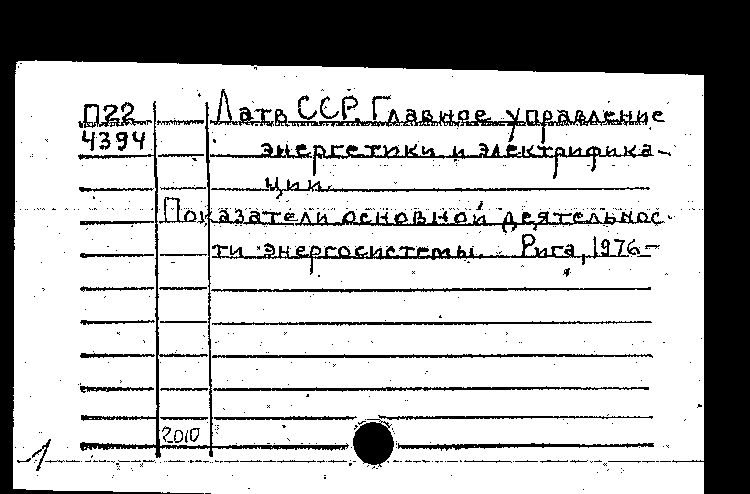 П22 Латв ССР. Главное управление
4394 энергетики и электрифика-
ции.
Показатели основной деятельнос-
ти энергосистемы. Рига, 1976-
2010
1